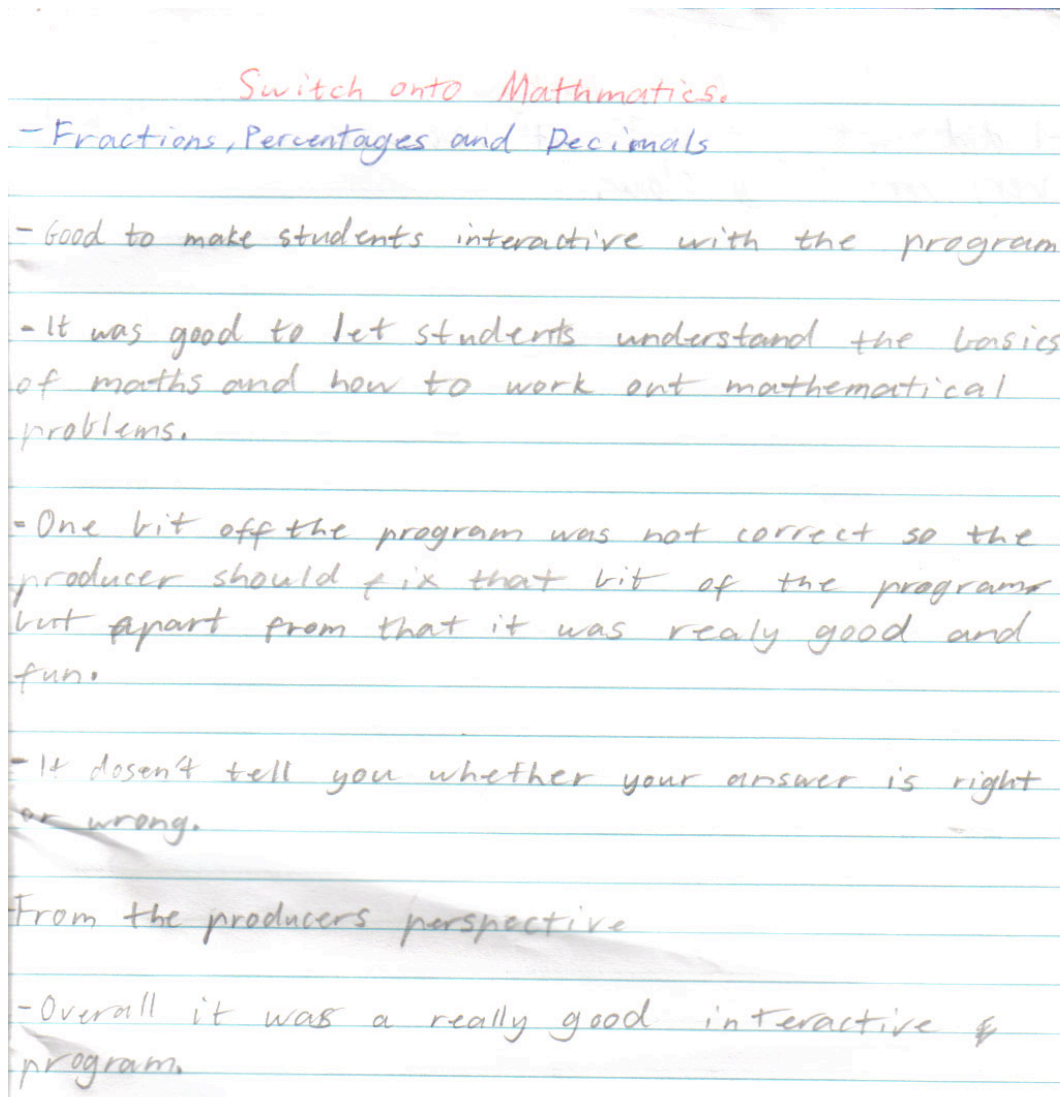 Switch onto Mathmatics.
- Fractions, Percentages and Decimals
- Good to make students interactive with the program
- It was good to let students understand the basics
of maths and how to work out mathematical
problems.
- One bit off the program was not correct so the
producer should fix that bit of the program
but apart from that it was realy good and
fun.
- It dosen't tell you whether your answer is right
or wrong.
From the producers perspective
- Overall it was a really good interactive
program.